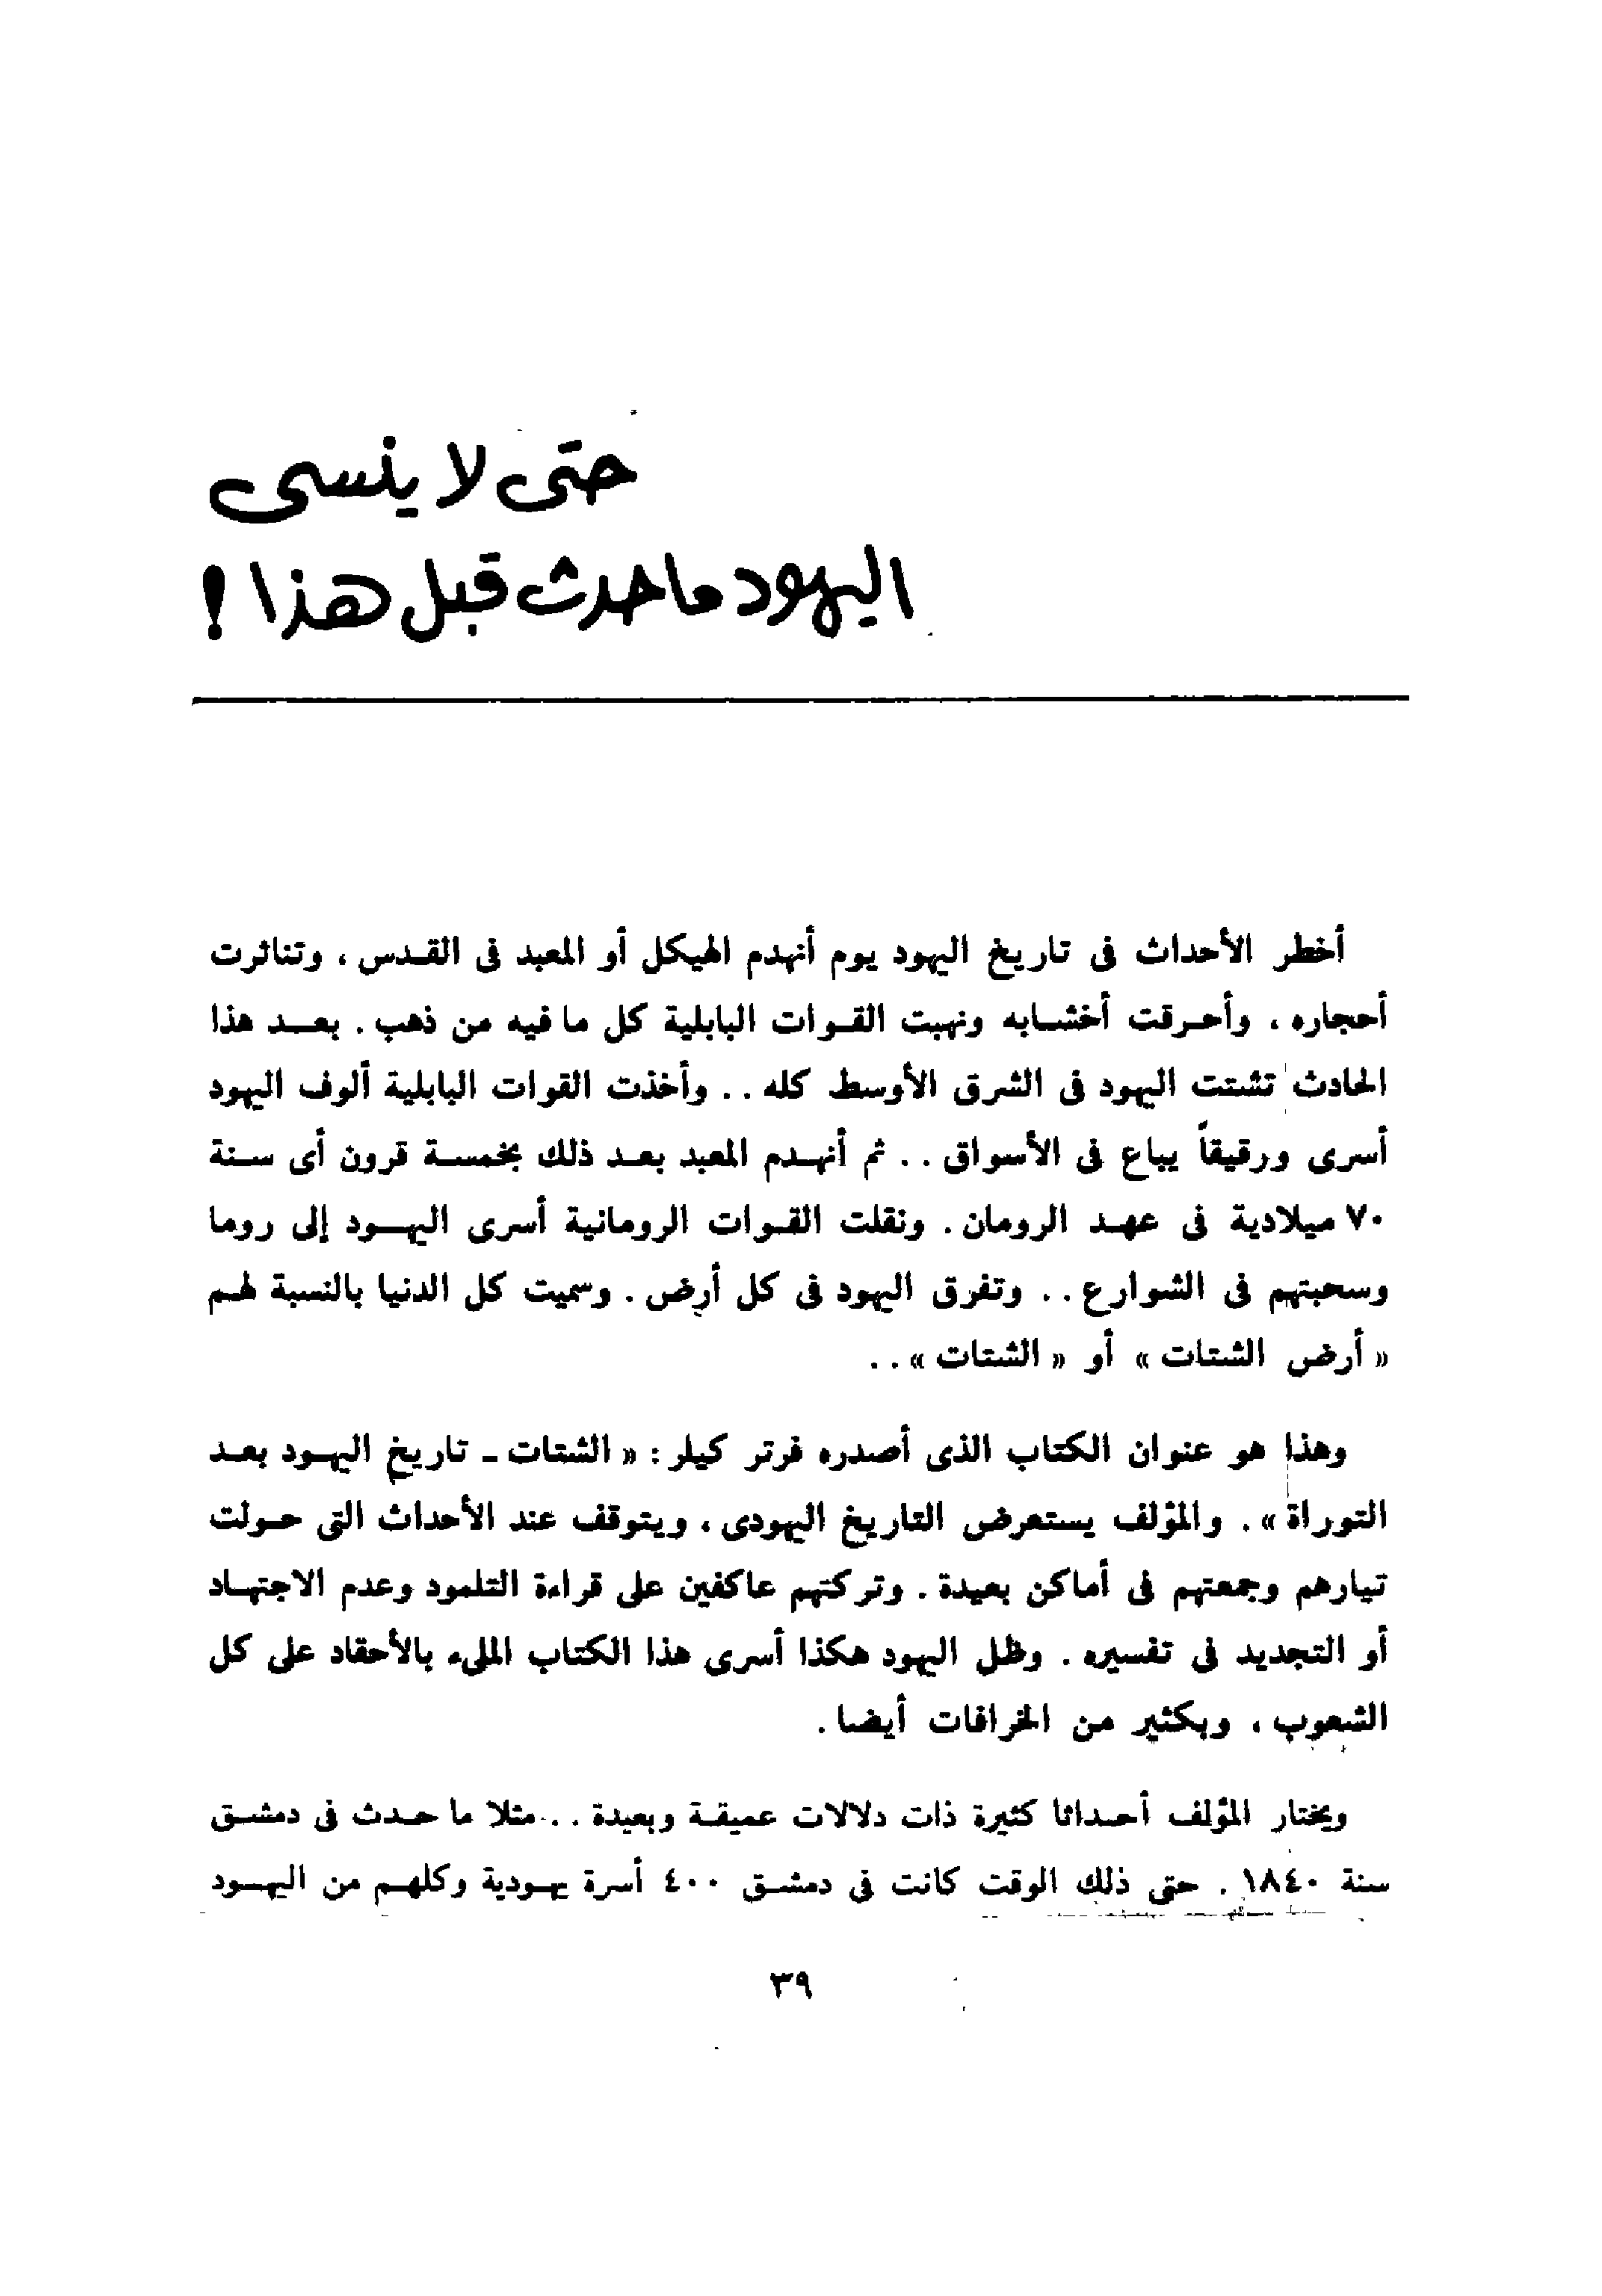 حتى لا ينسى
اليهود ما حدث قبل هذا !
أخطر الأحداث فى تاريخ اليهود يوم أنهدم الهيكل أو المعبد فى القدس ، وتناثرت
أحجاره ، وأحرقت أخشابه ونهبت القوات البابلية كل ما فيه من ذهب . بعد هذا
الحادث تشتت اليهود فى الشرق الأوسط كله .. وأخذت القوات البابلية ألوف اليهود
أسرى ورقيقاً يباع فى الأسواق .. ثم أنهدم المعبد بعد ذلك بخمسة قرون أى سنة
٧٠ ميلادية فى عهد الرومان . ونقلت القوات الرومانية أسرى اليهود إلى روما
وسحبتهم فى الشوارع .. وتفرق اليهود فى كل أرض . وسميت كل الدنيا بالنسبة لهم
« أرض الشتات » أو « الشتات » ..
وهذا هو عنوان الكتاب الذى أصدره فرتر كيلر : « الشتات ـ تاريخ اليهود بعد
التوراة » . والمؤلف يستعرض التاريخ اليهودى ، ويتوقف عند الأحداث التى حولت
تيارهم وجمعتهم فى أماكن بعيدة . وتركتهم عاكفين على قراءة التلمود وعدم الاجتهاد
أو التجديد فى تفسيره . وظل اليهود هكذا أسرى هذا الكتاب المليء بالأحقاد على كل
الشعوب ، وبكثير من الخرافات أيضا .
ويختار المؤلف أحداثا كثيرة ذات دلالات عميقة وبعيدة .. مثلا ما حدث فى دمشق
سنة ١٨٤٠ . حتى ذلك الوقت كانت فى دمشق ٤٠٠ أسرة يهودية وكلهم من اليهود
٣٩